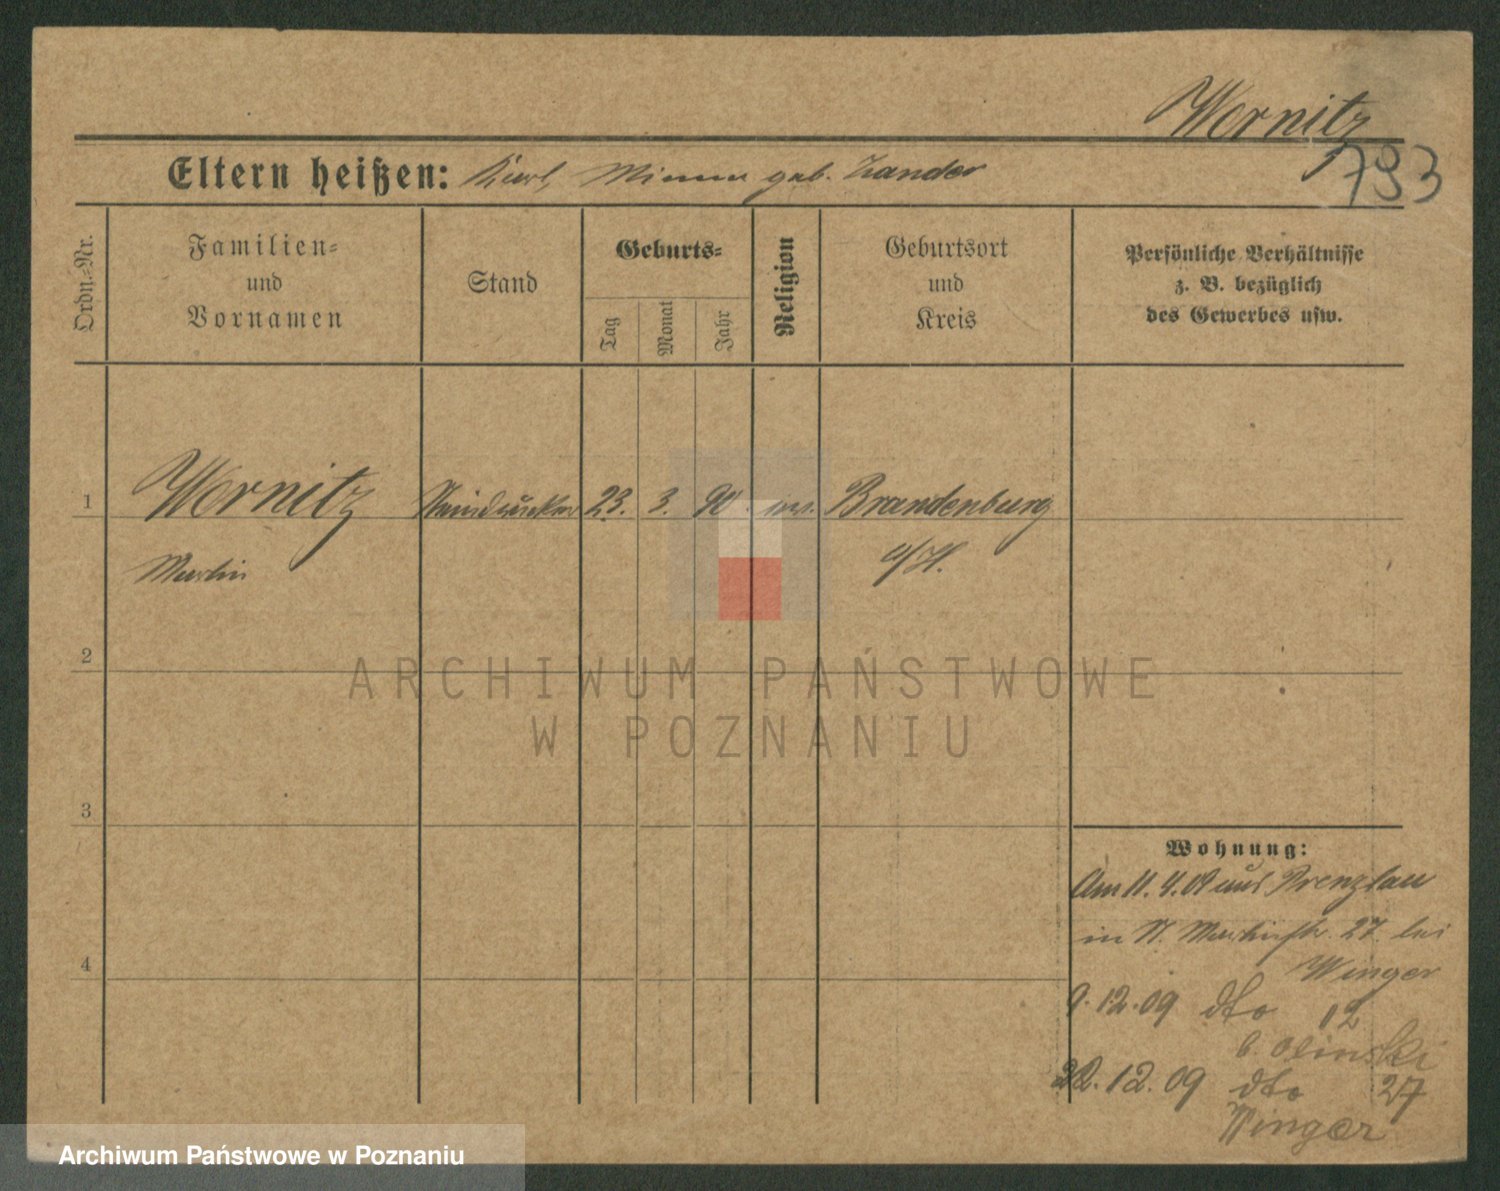 Wornitz
793
Eltern heißen: Karl, Minna geb. Zander
Ordn.-Nr.
Familien-
und
Vornamen
Stand
Geburts-
Tag
Monat
Jahr
Religion
Geburtsort
und
Kreis
Persönliche Verhältnisse
z. B. bezüglich
des Gewerbes usw.
1 Wornitz Steindrucker 23. 3. 90. ev. Brandenburg
Martin a/H.
2
3
4
Wohnung:
Am 11. 4. 09 aus Prenzlau
in St. Martinstr. 27 bei
Winger
9.12.09 dto 12
b. Olinski
22.12.09 dto 27
Winger
ARCHIWUM PAŃSTWOWE
W POZNANIU
Archiwum Państwowe w Poznaniu